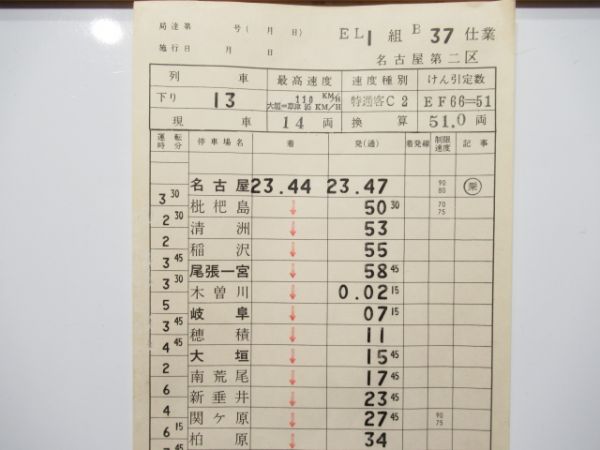 局達第 号(月 日) EL1組 B37仕業
施行日 月 日 名古屋第二区
列車 最高速度 速度種別 けん引定数
下り 13 110 KM/H 特通客C2 EF66=51
大垣=草津 95 KM/H
現車 14両 換算 51.0両
運転時分 停車場名 着 発(通) 着発線 制限速度 記事
名古屋 23.44 23.47 90 80 乗
3 30
枇杷島 ↓ 50 30 70 75
2 30
清洲 ↓ 53
2
稲沢 ↓ 55
3 45
尾張一宮 ↓ 58 45
3 30
木曽川 ↓ 0.02 15
5
岐阜 ↓ 07 15
3 45
穂積 ↓ 11
4 45
大垣 ↓ 15 45
2
南荒尾 ↓ 17 45
6
新垂井 ↓ 23 45
4
関ケ原 ↓ 27 45 90 75
6 15
柏原 ↓ 34